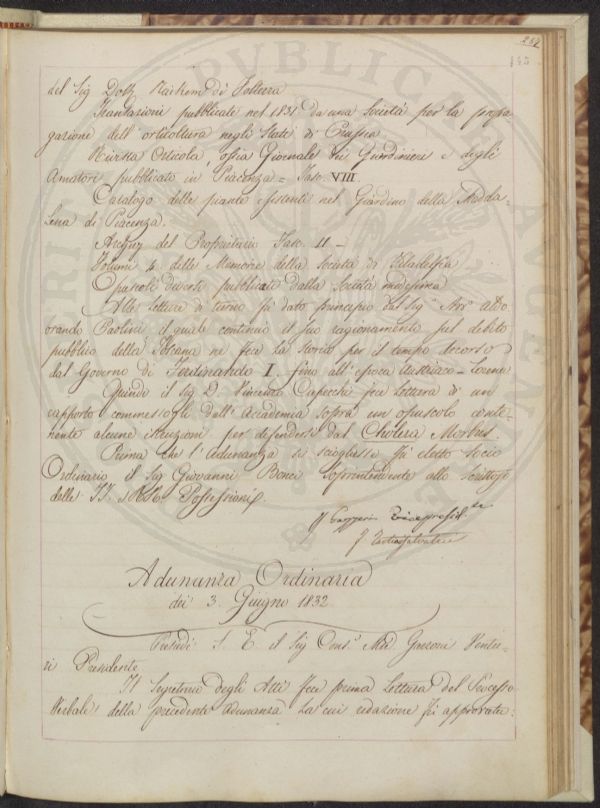 257
del Sig. Dott.
Transazioni pubblicate nel 1831 da una Società per la propa-
gazione dell'orticoltura negli Stati di Prussia
Rivista Orticola, ossia Giornale dei Giardinieri e degli
Amatori pubblicato in Piacenza = Fasc. VIII.
Catalogo delle piante esistenti nel Giardino della Madda-
lena di Piacenza.
del Proprietario Fasc. 11 –
Volumi 4. delle Memorie della Società di Filadelfia
Opuscoli diversi pubblicati dalla Società medesima
Alle letture di turno fù dato principio dal Sig. Avv. Aldo-
orando Paolini il quale continuò il suo ragionamento sul debito
pubblico della Toscana ne fece la Storia per il tempo decorso
dal Governo di Ferdinando I. fino all'epoca Austriaco-Lorena
Quindi il Sig. D. Vincenzo Capecchi fece Lettura di un
rapporto commessogli dall'Accademia sopra un opuscolo conte-
nente alcune istruzioni per difendersi dal Cholera Morbus.
Prima che l'Adunanza si sciogliesse fù eletto Socio
Ordinario il Sig. Giovanni Bonci Soprintendente allo Scrittojo
delle II. e RR. Possessioni
Vicepresid.te
Adunanza Ordinaria
dei 3. Giugno 1832
Presiede S. E. il Sig. Cons. Garzoni Ventu-
ri Presidente
Il Segretario degli Atti fece prima Lettura del Processo
Verbale della precedente adunanza La cui redazione fù approvata:
PVBLICAE